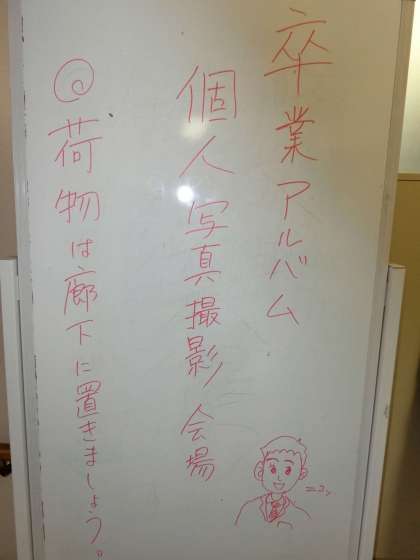 卒業アルバム
個人写真撮影会場
◎荷物は廊下に置きましょう。
ニコッ